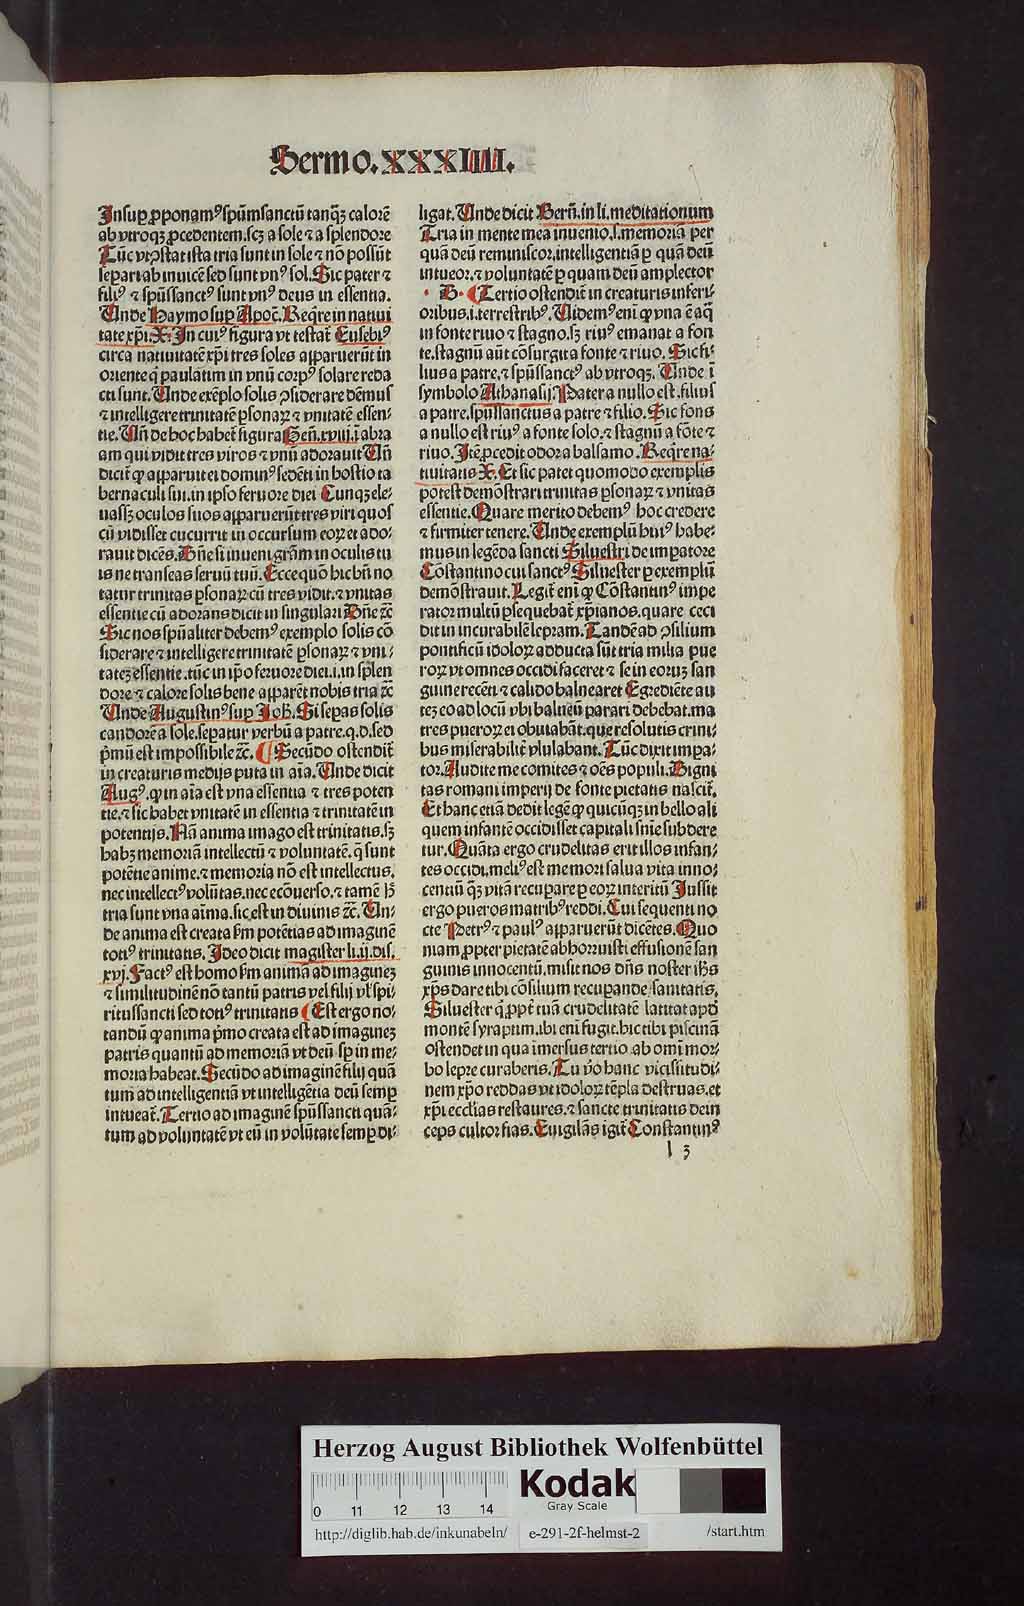 Sermo.XXXIIII.
Insuꝑ ꝓponamꝰ spūmsanctū tanqꝫ calorē
ab vtroqꝫ ꝓcedentem.scꝫ a sole ⁊ a splendore
Tūc vt ꝓstat ista tria sunt in sole ⁊ nō possūt
separi ab inuicē sed sunt vnꝰ sol. Sic pater ⁊
filiꝰ ⁊ spūssanctꝰ sunt vnꝰ deus in essentia.
Unde Haymo suꝑ Apoc̄. Reqͥre in natiui
tate xp̄i.X. In cuiꝰ figura vt testat᷑ Eusebiꝰ
circa natiuitatē xp̄i tres soles apparuerūt in
oriente qͥ paulatim in vnū corpꝰ solare reda
cti sunt. Unde exēplo solis ꝯsiderare dēmus
⁊ intelligere trinitatē ꝑsonaꝝ ⁊ vnitatē essen-
tie. Uñ de hoc habet᷑ figura Geñ.xviij.ī abra
am qui vidit tres viros ⁊ vnū adorauit Uñ
dicit᷑ ꝙ apparuit ei dominꝰ sedēti in hostio ta
bernaculi sui.in ipso feruore diei Cunqꝫ ele-
uassꝫ oculos suos apparuerūt tres viri quos
cū vidisset cucurrit in occursum eoꝝ et ado-
rauit dicēs. Dñe si inueni grām in oculis tu
is ne transeas seruū tuū. Ecce quō hic bñ no
tatur trinitas ꝑsonaꝝ cū tres vidit.⁊ vnitas
essentie cū adorans dicit in singulari Dñe ⁊c̄
Sic nos spūaliter debemꝰ exemplo solis cō
siderare ⁊ intelligere trinitatē ꝑsonaꝝ ⁊ vni-
tateꝫ essentie.tūc in ip̄o feruore diei.i.in splen
dore ⁊ calore solis bene apparēt nobis tria ⁊c̄
Unde Augustinꝰ suꝑ Joh̄. Si sepas solis
candorē a sole.sepatur verbū a patre.q.d.sed
pͥmū est impossibile ⁊c̄. ¶ Secūdo ostendit᷑
in creaturis medijs puta in aīa. Unde dicit
Augꝰ.ꝙ in aīa est vna essentia ⁊ tres poten
tie.⁊ sic habet vnitatē in essentia ⁊ trinitatē in
potentijs. Nā anima imago est trinitatis.sꝫ
habꝫ memoriā intellectū ⁊ voluntatē.q̄ sunt
potētie anime.⁊ memoria nō est intellectus,
nec intellectꝰ volūtas.nec ecōuerso.⁊ tamē h̄
tria sunt vna aīma.sic est in diuinis ⁊c̄. Un-
de anima est creata ẜm potētias ad imaginē
totiꝰ trinitatis. Ideo dicit magister li.ij.dis.
xvj. Factꝰ est homo ẜm animā ad imagineꝫ
⁊ similitudinē nō tantū patris vel filij vĺ spi-
ritussancti sed totiꝰ trinitatis ¶ Est ergo no-
tandū ꝙ anima pͥmo creata est ad imagineꝫ
patris quantū ad memoriā vt deū sꝑ in me-
moria habeat. Secūdo ad imaginē filij quā
tum ad intelligentiā vt intelligētia deū semꝑ
intueat᷑. Tertio ad imaginē spūssancti quā-
tum ad voluntatē vt eū in volūtate semꝑ di-
ligat. Unde dicit Berñ.in li.meditationum
Tria in mente mea inuenio.s.memoriā per
quā deū reminiscor.intelligentiā ꝑ quā deū
intueor.⁊ voluntatē ꝑ quam deū amplector
·B· ¶ Tertio ostendit᷑ in creaturis inferi-
oribus.i.terrestribꝰ. Uidemꝰ eni ꝙ vna ē aqͣ
in fonte riuo ⁊ stagno.sꝫ riuꝰ emanat a fon
te.stagnū aūt cōsurgit a fonte ⁊ riuo. Sic fi-
lius a patre.⁊ spūssanctꝰ ab vtroqꝫ. Unde ī
symbolo Athanasij. Pater a nullo est.filius
a patre.spūssanctus a patre ⁊ filio. Sic fons
a nullo est riuꝰ a fonte solo.⁊ stagnū a fōte ⁊
riuo. Itē ꝓcedit odor a balsamo. Reqͥre na-
tiuitatis X. Et sic patet quomodo exemplis
potest demōstrari trinitas ꝑsonaꝝ ⁊ vnitas
essentie. Quare merito debemꝰ hoc credere
⁊ firmiter tenere. Unde exemplū huiꝰ habe-
mus in legēda sancti Siluestri de imꝑatore
Cōstantino cui sanctꝰ Siluester ꝑ exemplū
demōstrauit. Legit᷑ eni ꝙ Cōstantinꝰ impe
rator multū ꝑsequebat᷑ xp̄ianos.quare ceci
dit in incurabilē lepram. Tandē ad ꝯsilium
pontificū idoloꝝ adducta sūt tria milia pue
roꝝ vt omnes occidi faceret ⁊ se in eoruꝫ san
guine recēti ⁊ calido balnearet Egrediēte au
teꝫ eo ad locū vbi balneū parari debebat.ma
tres pueroꝝ ei obuiabāt.que resolutis crini-
bus miserabilit᷑ vlulabant. Tūc dixit impa-
tor. Audite me comites ⁊ oēs populi. Digni
tas romani imperij de fonte pietatis nascit᷑.
Et hanc etiā dedit legē ꝙ quicūqꝫ in bello ali
quem infantē occidisset capitali sniē subdere
tur. Quāta ergo crudelitas erit illos infan-
tes occidi.meliꝰ est me mori salua vita inno-
centiū qꝫ vitā recuꝑare ꝑ eoꝝ interitū Jussit
ergo pueros matribꝰ reddi. Cui sequenti no
cte Petrꝰ ⁊ paulꝰ apparuerūt dicētes. Quo
niam propter pietatē abhorruisti effusionē san
guinis innocentū.misit nos dn̄s noster ih̄s
xp̄s dare tibi cōsilium recuperande sanitatis.
Siluester qͥ ꝓpt᷑ tuā crudelitatē latitat apď
montē syraptim.ibi eni fugit.hic tibi piscinā
ostendet in qua īmersus tertio ab omī mor-
bo lepre curaberis. Tu v̄o hanc vicisitudi-
nem xp̄o reddas vt idoloꝝ tēpla destruas.et
xp̄i eccl̄ias restaures.⁊ sancte trinitatis dein
ceps cultor fias. Euigilās igit᷑ Constantinꝰ
l 3
Herzog August Bibliothek Wolfenbüttel
0 11 12 13 14
Kodak
Gray Scale
http://diglib.hab.de/inkunabeln/ e-291-2f-helmst-2 /start.htm